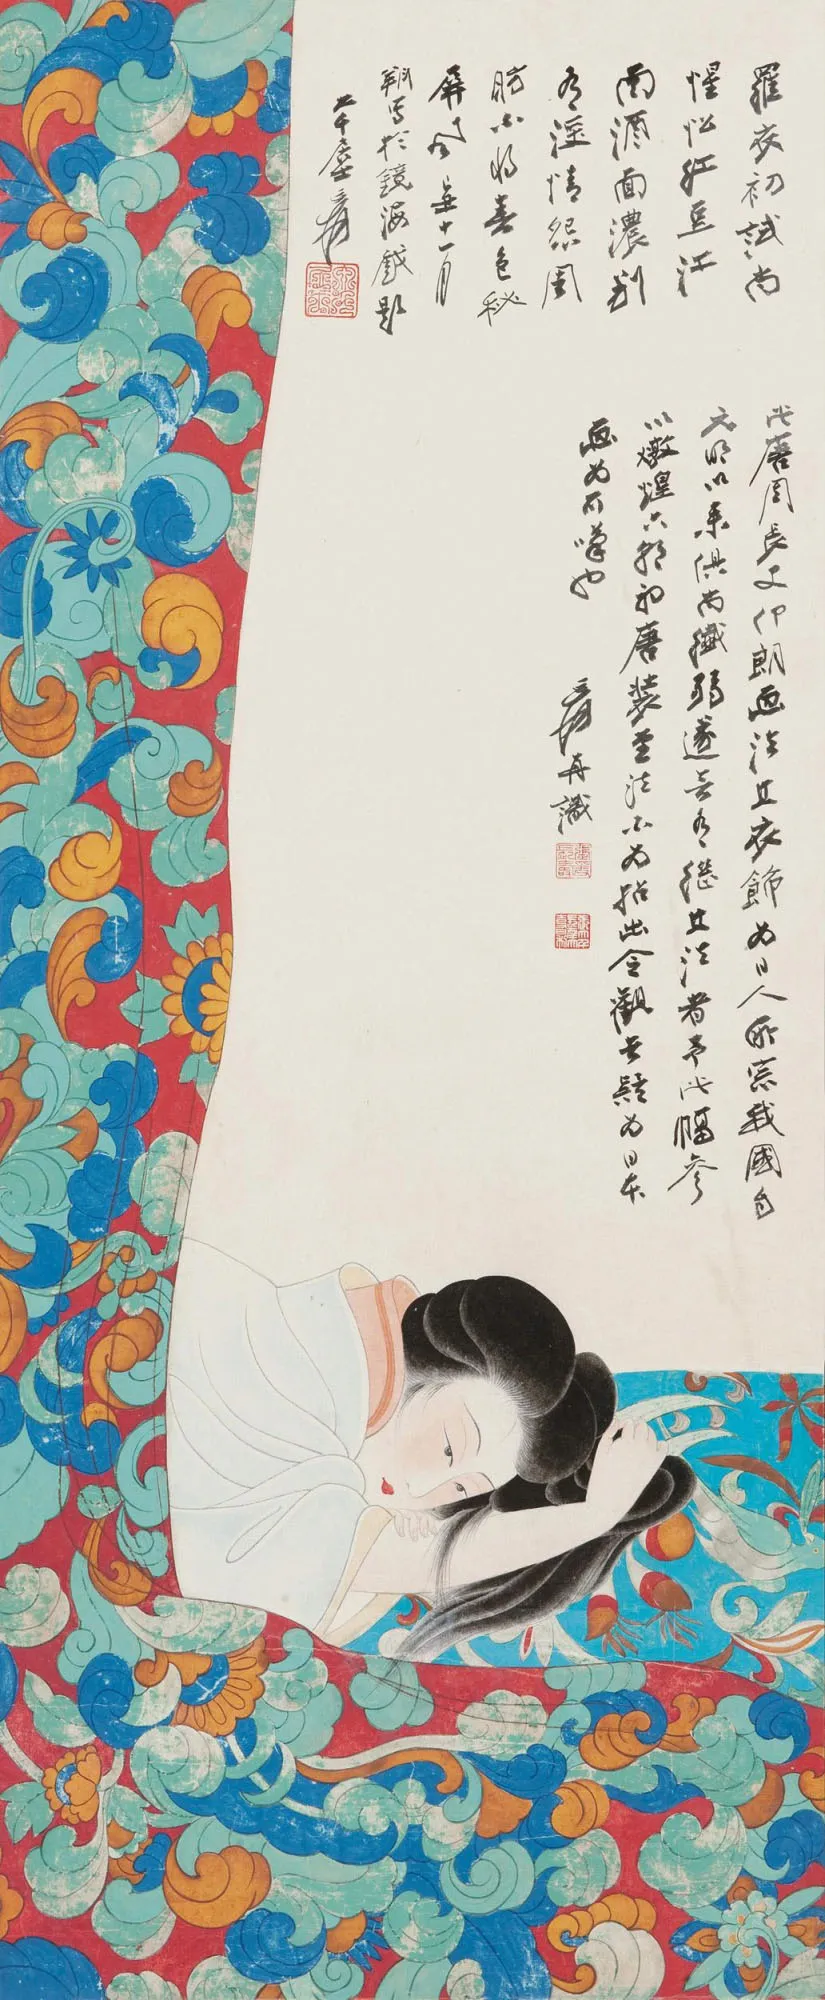 羅衣初試尚
惺忪紅豆江
南酒面濃別
有淫情怨周
昉不將春色秘
屏風 十一月
寫於鏡海戲題
大千居士爰
此唐周長文仲朗畫法其衣飾為日人所崇我國自
元明以來俱尚纖弱遂無有繼其法者予此幅參
以燉煌六朝初唐裝畫法不為拈出令觀者疑為日本
畫為可嘆也
爰再識